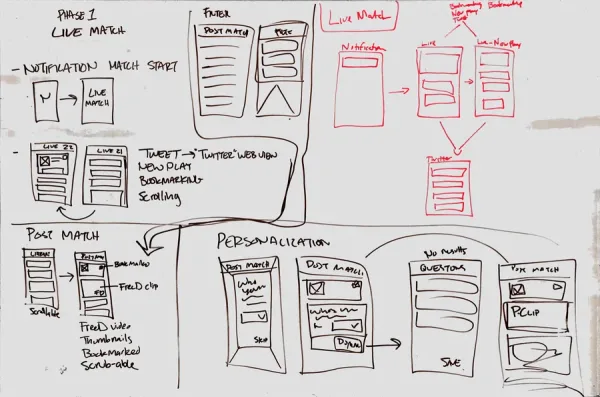 PHASE 1
LIVE MATCH
- NOTIFICATION MATCH START
LIVE
MATCH
-
LIVE 22
LIVE 21
TWEET → "TWITTER" WEB VIEW
NEW PLAY
BOOKMARKING
Scrolling
FILTER
POST MATCH
Live Match
Notification
Bookmarking
New Play
Bookmarking
Live
Live-New Play
Twitter
POST MATCH
Scrollable
Bookmarked
FreeD clip
FreeD video
Thumbnails
Bookmarked
Scrub-able
PERSONALIZATION
POST MATCH
Who
your
SKIP
POST MATCH
No results
QUESTIONS
SAVE
POST MATCH
P.CLIP